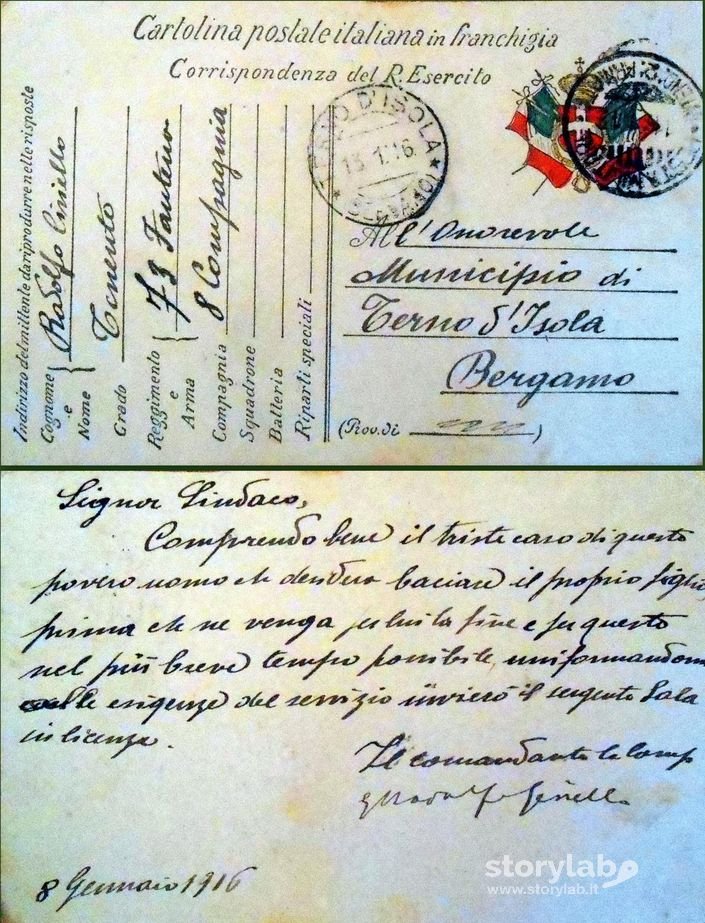 Cartolina postale italiana in franchigia
Corrispondenza del R. Esercito
Indirizzo del mittente da riprodurre nelle risposte
Cognome e Nome { Radolfo
Grado Tenente
Reggimento e Arma { 73 Fanteria
Compagnia 8 Compagnia
Squadrone
Batteria
Riparti speciali
TERNO D'ISOLA
13.1.16
(BERGAMO)
All'Onorevole
Municipio di
Terno d'Isola
Bergamo
(Prov. di )
Signor Sindaco,
Comprendo bene il triste caso di questo
povero uomo che desidera baciare il proprio figlio
prima che ne venga per lui la fine e per questo
nel più breve tempo possibile, uniformandomi
alle esigenze del servizio invierò il sergente Sala
in licenza.
Il comandante la Comp
8 Gennaio 1916
storylab
www.storylab.it